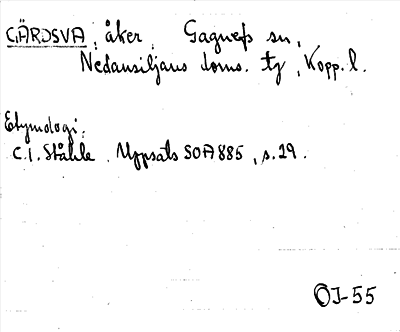 GÄRDSVA, åker, Gagnefs sn,
Nedansiljans doms. tg, Kopp. l.
Etymologi:
C.I. Ståhle. Uppsats SOA 885, s. 29.
OJ-55